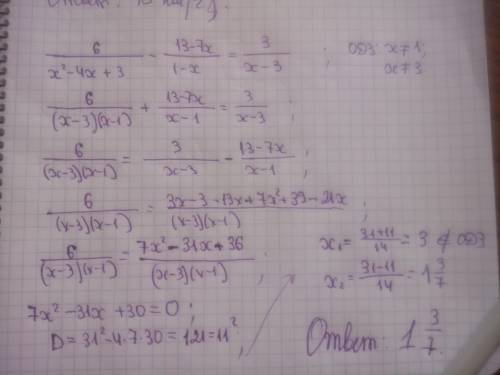 6/(x²-4x+3) - (13-7x)/(1-x) = 3/(x-3) ; ОДЗ: x≠1; x≠3
6/((x-3)(x-1)) + (13-7x)/(x-1) = 3/(x-3) ;
6/((x-3)(x-1)) = 3/(x-3) - (13-7x)/(x-1) ;
6/((x-3)(x-1)) = (3x-3-13x+7x²+39-21x)/((x-3)(x-1)) ;
6/((x-3)(x-1)) = (7x²-31x+36)/((x-3)(x-1)) ;
7x²-31x+30=0 ;
D=31²-4·7·30=121=11²
x₁=(31+11)/14=3 ∉ ОДЗ
x₂=(31-11)/14=1 3/7
Ответ: 1 3/7.